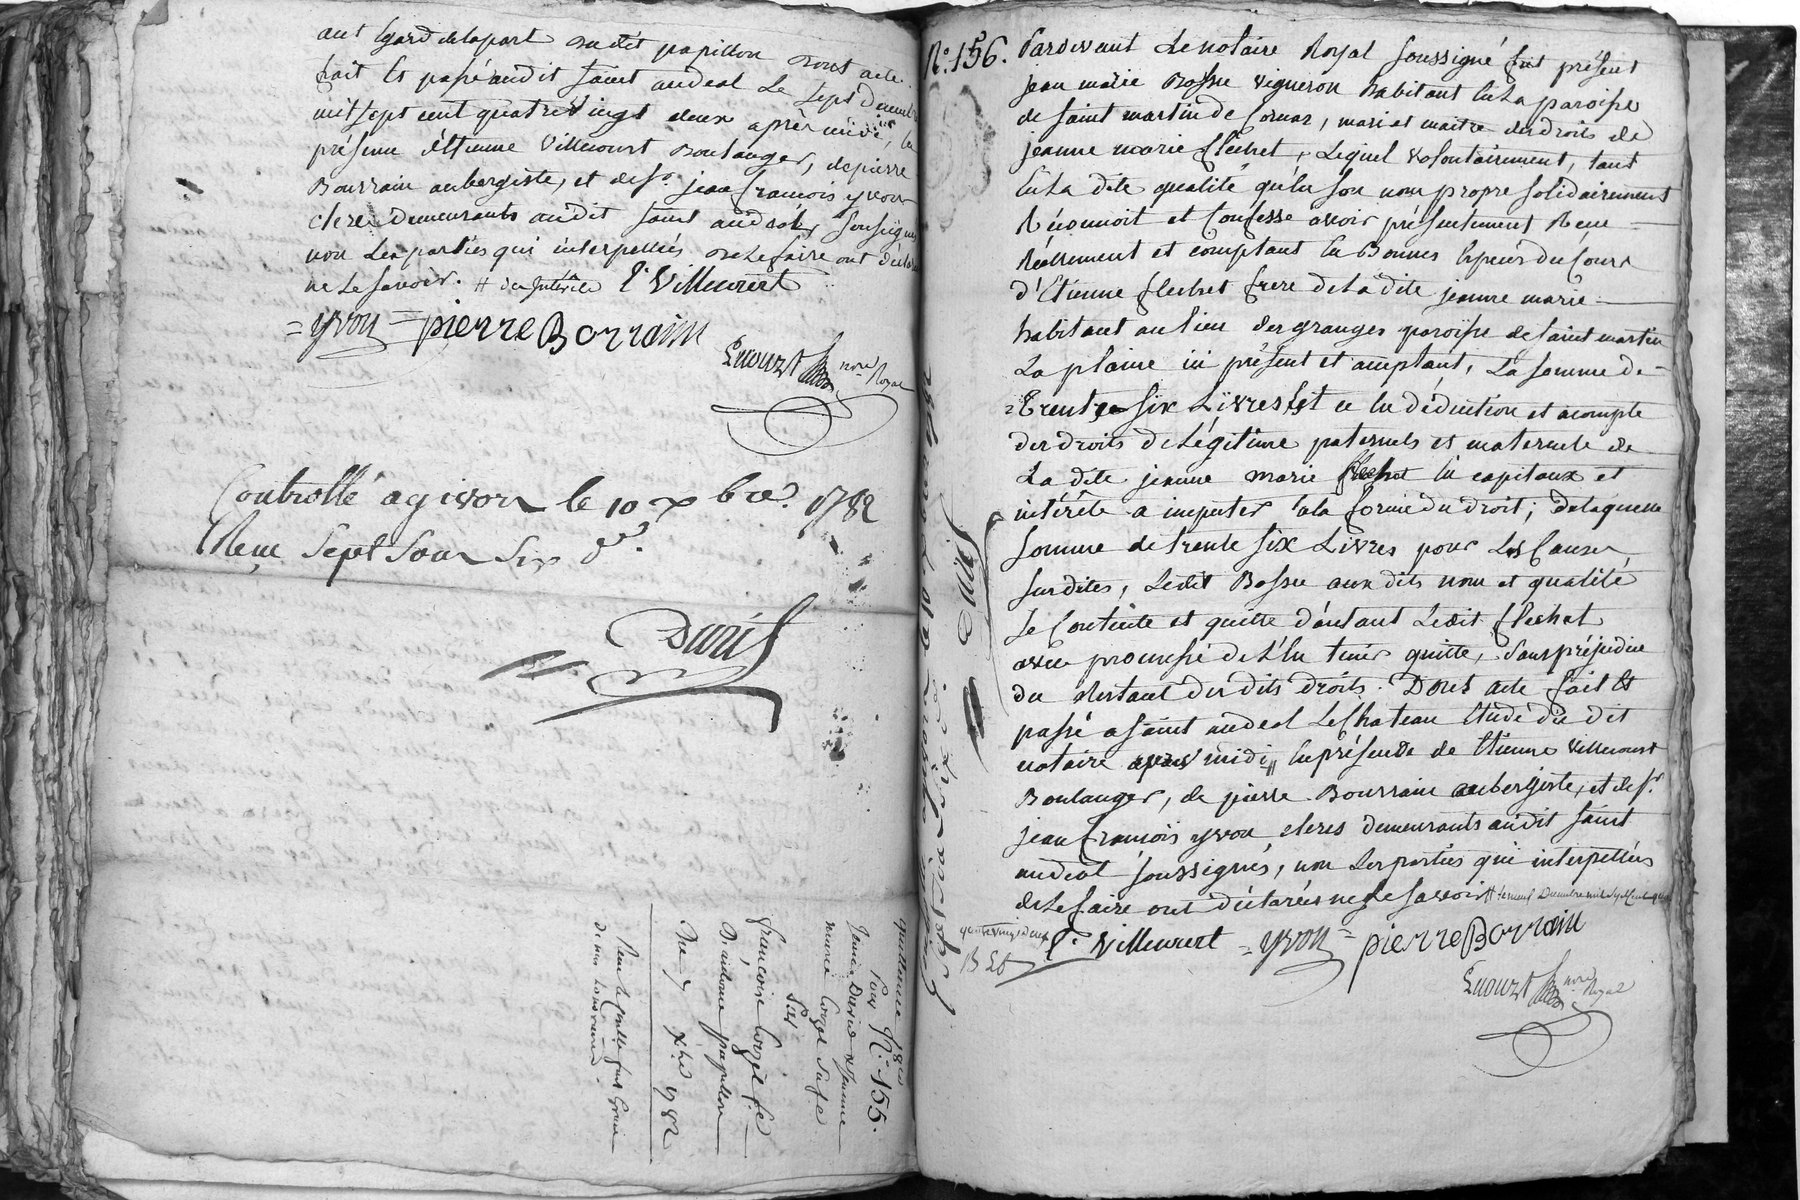 aut égard delapart dudit papillon dont acte
fait et passé audit saint andeol le sept decembre
mil sept cent quatrevingt deux après midi, en
présence d'Etienne Villecourt Boulanger, de pierre
Bourrain aubergiste, et de sr. jean francois yvon
clerc demeurants audit saint andeol, soussignés
non les parties qui interpellées de le faire ont déclaré
ne le savoir. # des intérêts E. Villecourt
= yvon = pierre Borrain
nore Royal
Controllé a givors le 10 xbre. 1782
Reçu sept sous six drs.
quittance
Pour N.° 155.
françoise
papillon
Du 7 xbre 1782
N.° 156. Pardevant le notaire Royal soussigné fut présent
jean marie Bossu vigneron habitant en la paroisse
de saint martin de Cornas, mari et maitre des droits de
jeanne marie flechet, lequel volontairement, tant
en la dite qualité qu'en son nom propre solidairement
Reconnoit et confesse avoir présentement Reçu
Réellement et comptant en Bonnes Espèces du Cours
d'Etienne flechet frere de la dite jeanne marie
habitant au lieu des granges paroisse de saint martin
La plaine ici présent et acceptant, La somme de
= Trente six Livres Et ce en déduction et acompte
des droits de Légitime paternels et maternels de
La dite jeanne marie flechet en capitaux et
intérêts a imputer a la forme du droit; delaquelle
somme de trente six Livres pour les Causes
susdites, Ledit Bossu aux dits nom et qualité
se Contente et quitte d'autant Ledit flechet
avec promesse de L'en tenir quitte, sans préjudice
du Restant des dits droits. Dont acte fait et
passé a saint andeol Le Chateau Etude du dit
notaire après midi # en présence de Etienne Villecourt
Boulanger, de pierre Bourrain aubergiste, et de sr.
jean françois yvon clerc demeurants audit saint
andeol soussignés, non Les parties qui interpellées
de Le faire ont déclarées ne le savoir # le neuf Decembre mil sept cent
quatrevingt deux E. Villecourt = yvon = pierre Borrain
nore Royal